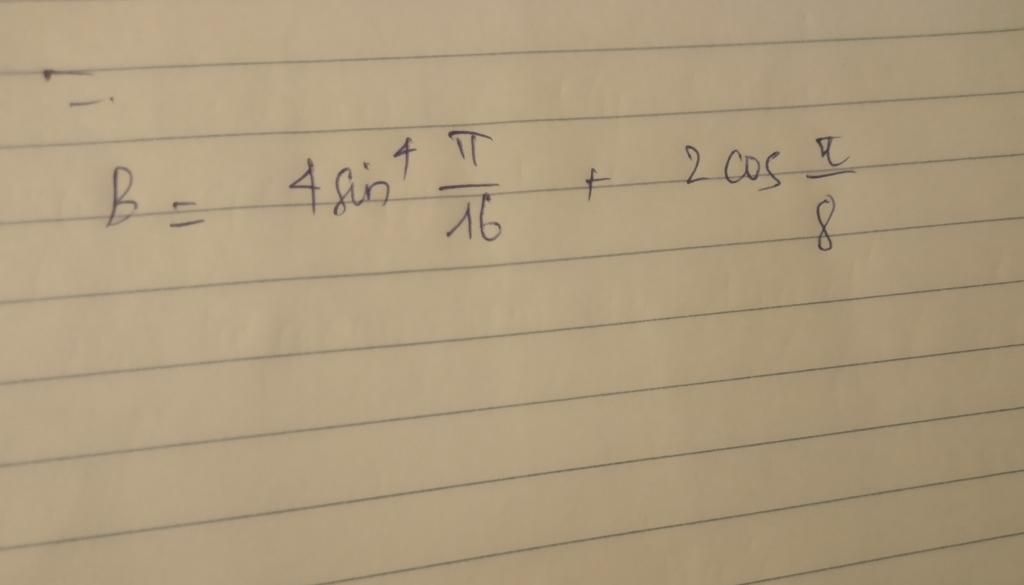 B = 4 sin⁴ π/16 + 2 cos π/8